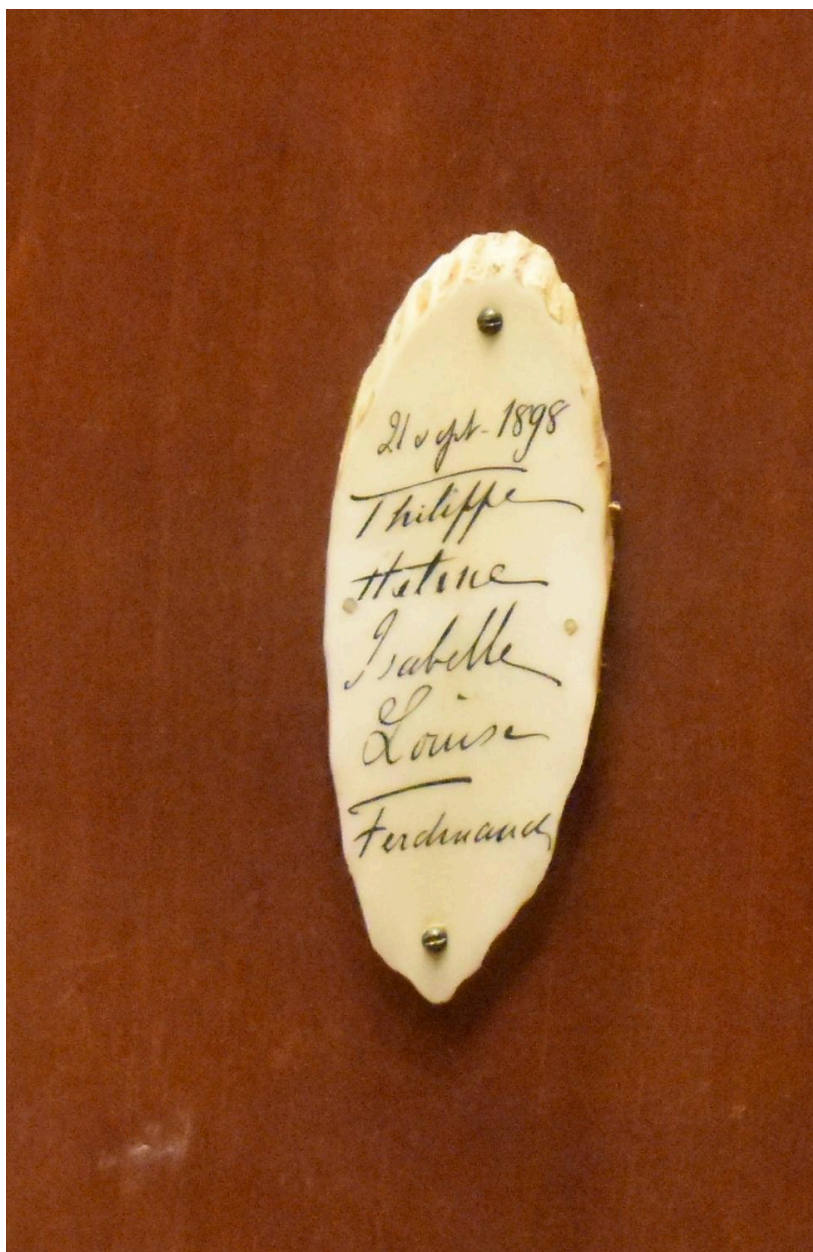 21 sept. 1898
Philippe
Helene
Isabelle
Louise
Ferdinand